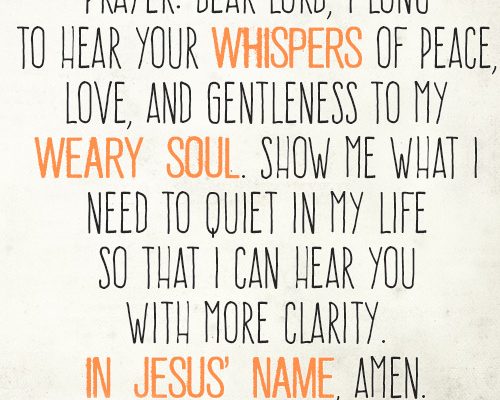 PRAYER: DEAR LORD, I LONG
TO HEAR YOUR WHISPERS OF PEACE,
LOVE, AND GENTLENESS TO MY
WEARY SOUL. SHOW ME WHAT I
NEED TO QUIET IN MY LIFE
SO THAT I CAN HEAR YOU
WITH MORE CLARITY.
IN JESUS' NAME, AMEN.